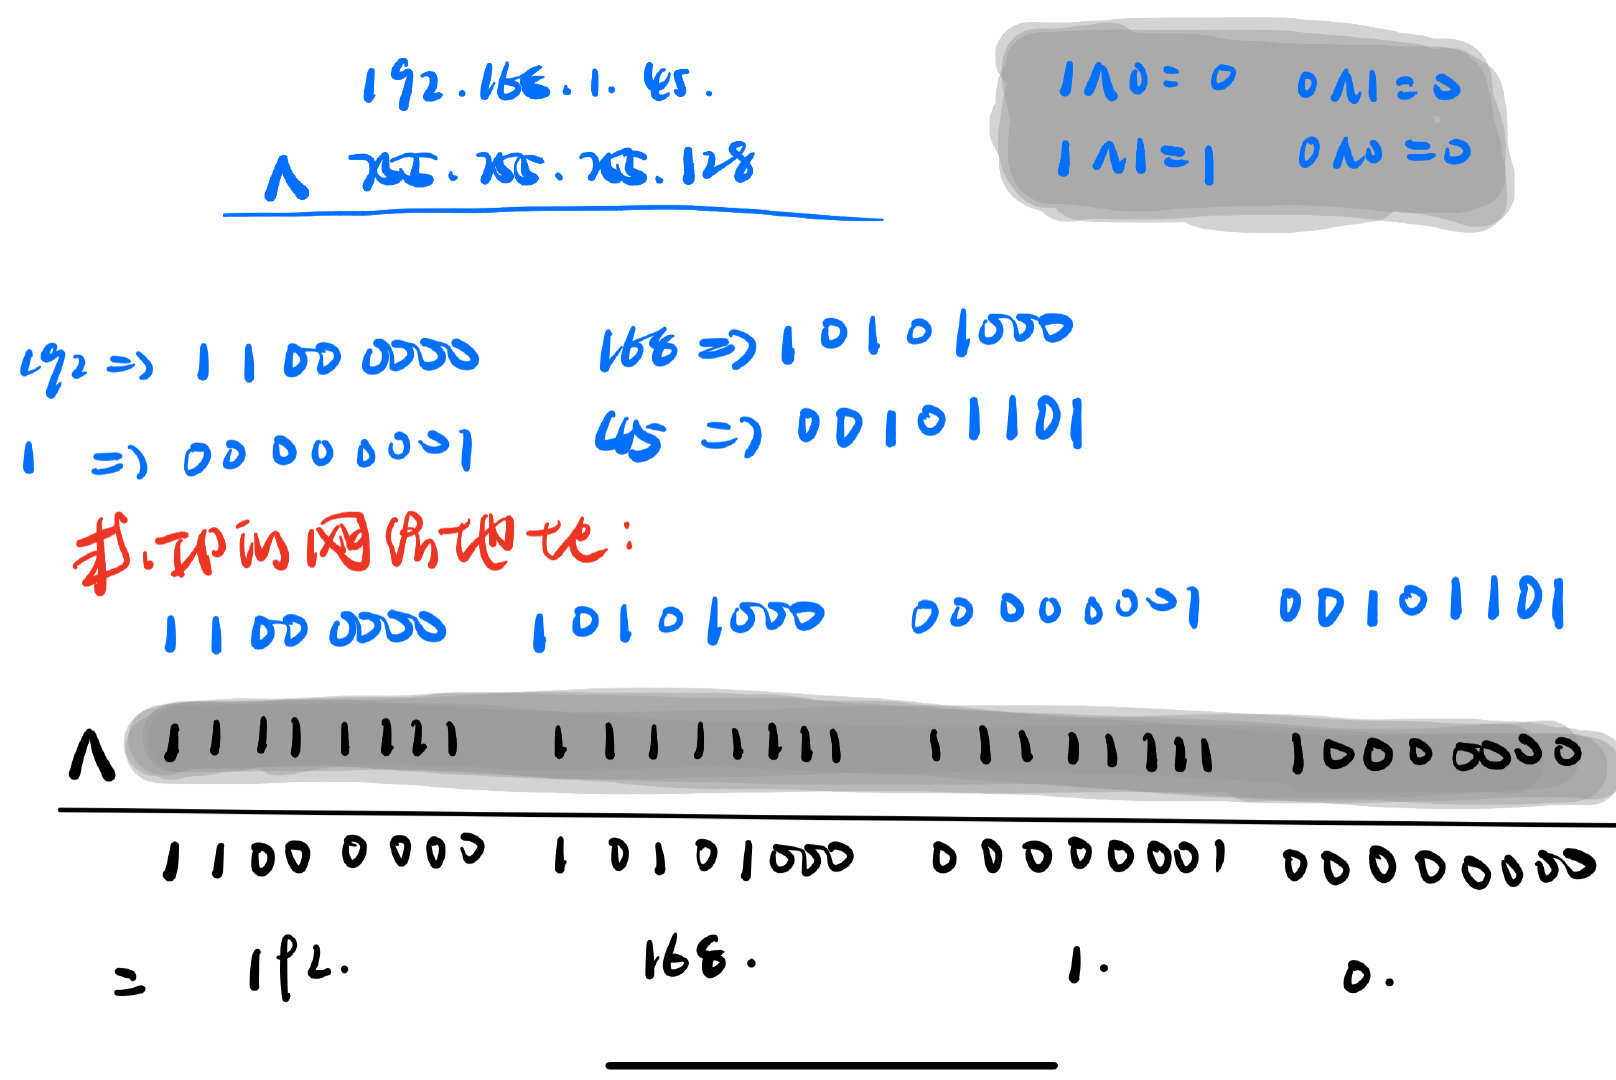 192.168.1.45.
∧ 255.255.255.128
1∧0=0 0∧1=0
1∧1=1 0∧0=0
192 => 1100 0000 168 => 10101000
1 => 00000001 45 => 00101101
求.IP的网络地址:
11000000 10101000 00000001 00101101
∧ 11111111 11111111 11111111 10000000
11000000 10101000 00000001 00000000
= 192. 168. 1. 0.